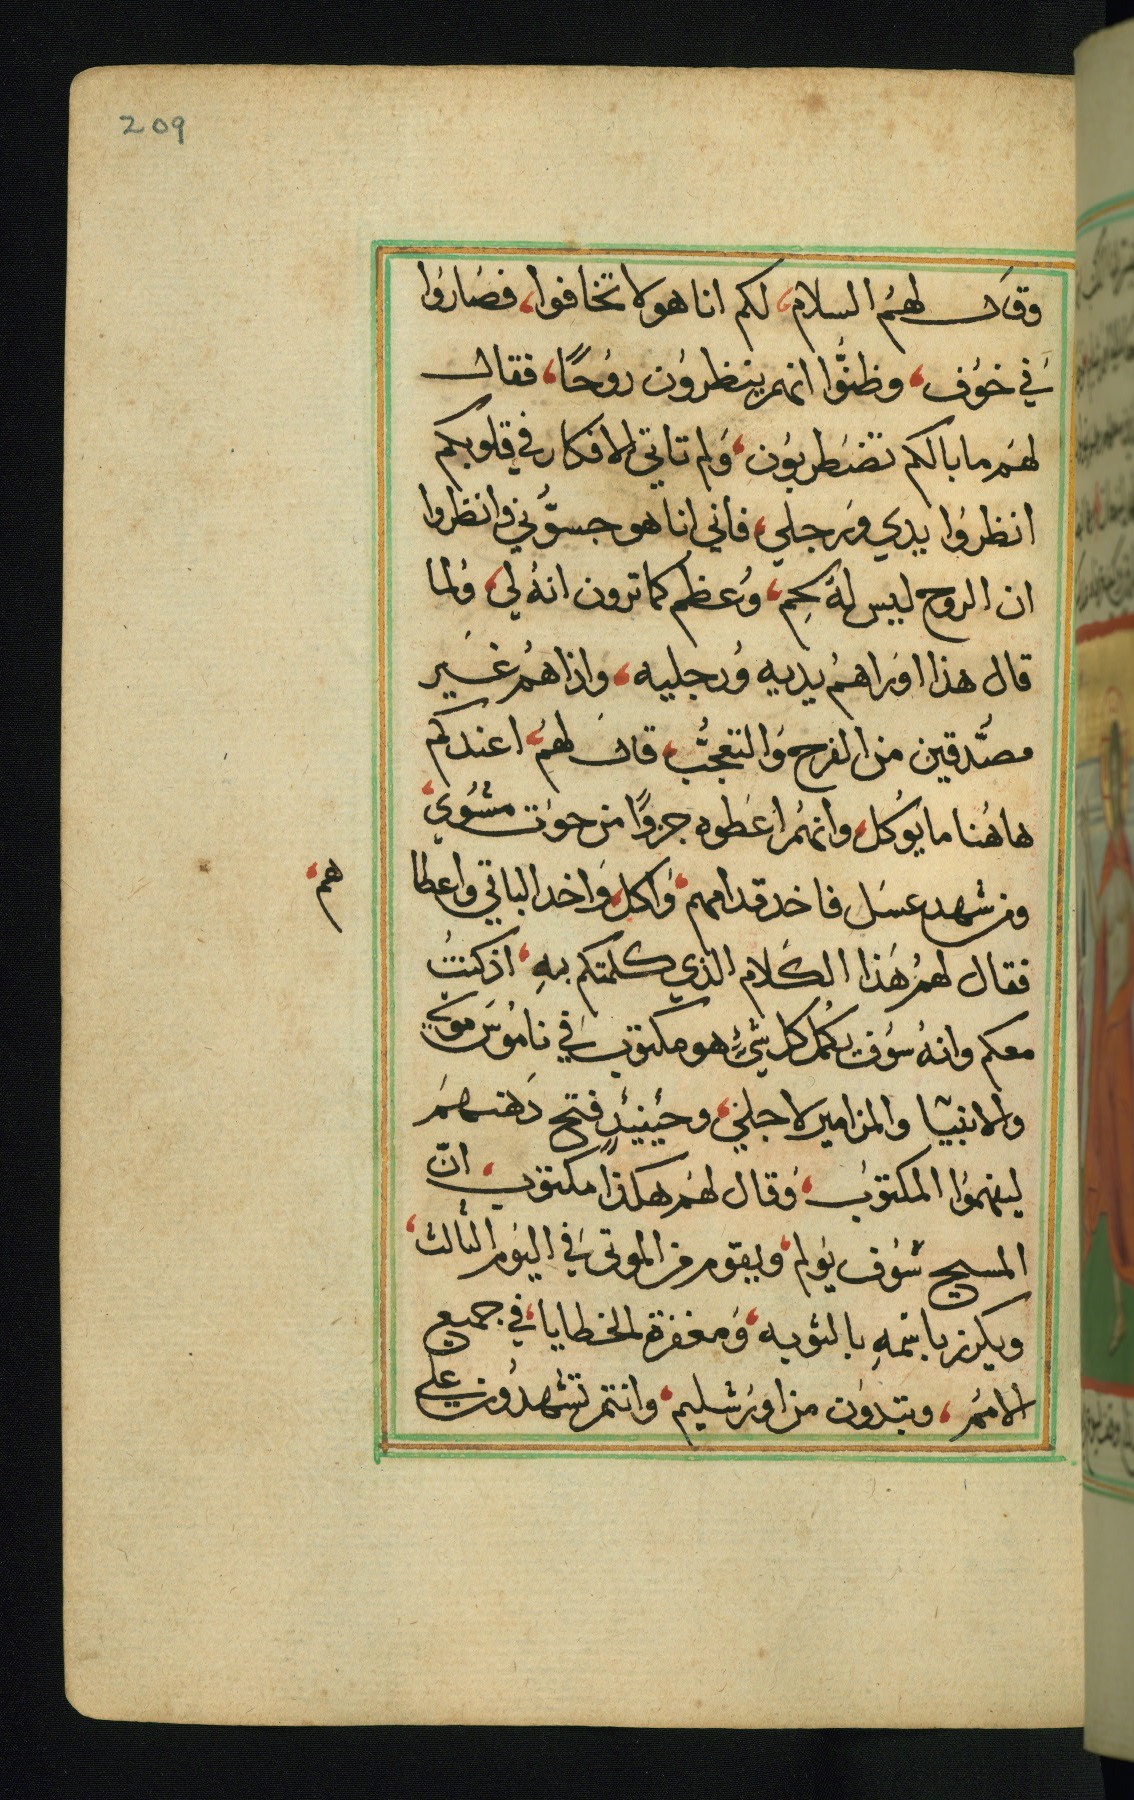 209
وقال لهم السلام، لكم انا هو لا تخافوا، فصاروا
في خوف، وظنوا انهم ينظرون روحًا، فقال
لهم ما بالكم تضطربون، ولم تاتي الافكار في قلوبكم
انظروا يدي ورجلي، فاني انا هو جسوني وانظروا
ان الروح ليس له لحم، وعظم كما ترون انه لي، ولما
قال هذا اوراهم يديه ورجليه، واذا هم غير
مصدقين من الفرح والتعجب، قال لهم، اعندكم
هاهنا ما يوكل، وانهم اعطوه جزوًا من حوت مشوي،
ومن شهد عسل فاخد قدامهم، واكل، واخد الباقي واعطا
هم،
فقال لهم هذا الكلام الذي كلمتكم به، اذ كنت
معكم وانه سوف يكمل كل شيء هو مكتوب في ناموس موسي
والانبيا والمزامير لاجلي، وحينيدٍ فتح دهنهم
ليفهموا المكتوب، وقال لهم هكذا مكتوب، انّ
المسيح سوف يولم، ويقوم من الموتى في اليوم الثالث،
ويكرز باسمه بالتوبه، ومغفرة الخطايا، في جميع
الامم، ويبتدون من اورشليم، وانتم تشهدون علي